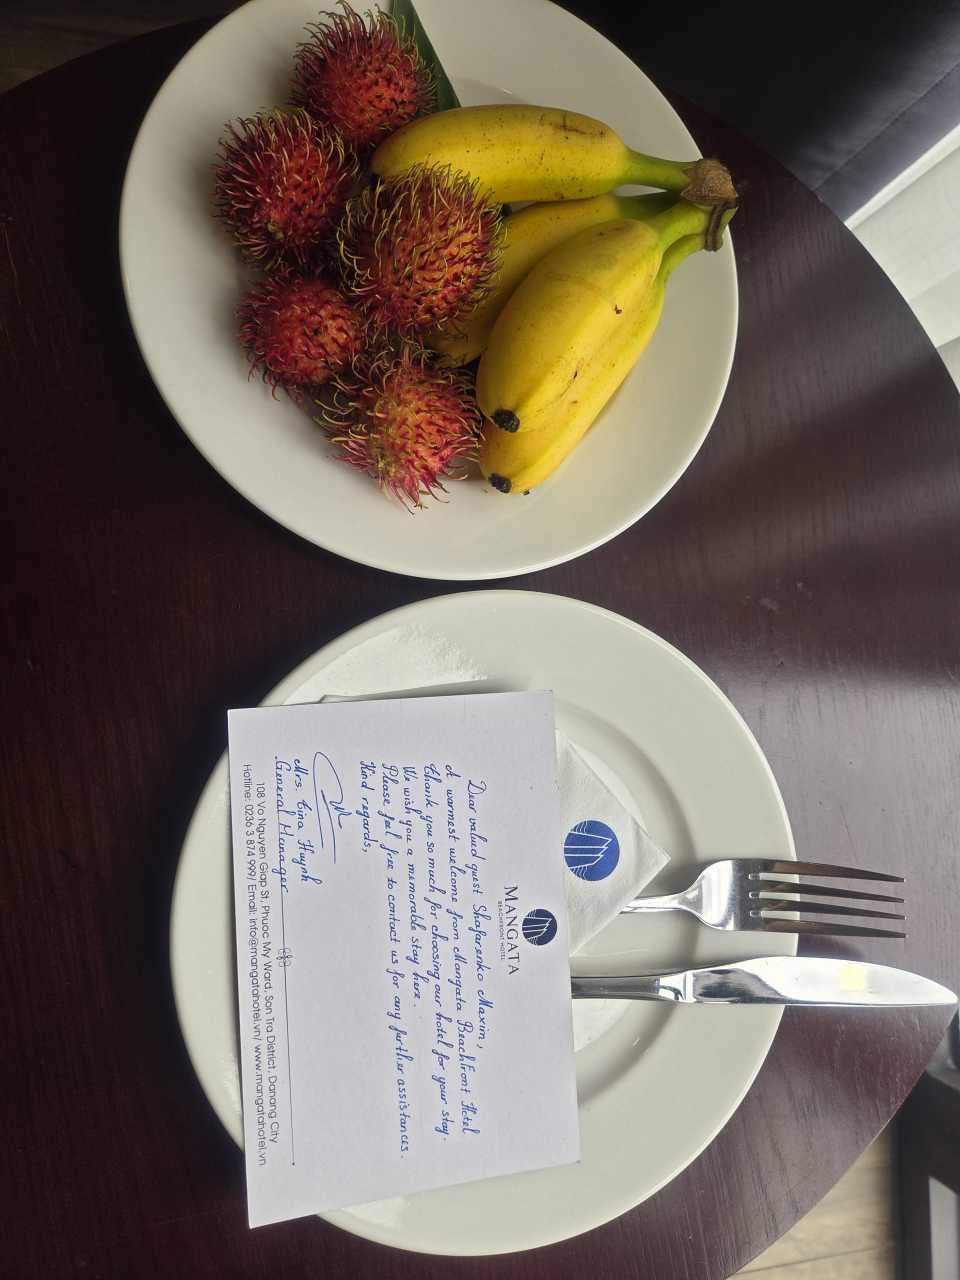 MANGATA
BEACHFRONT HOTEL
Dear valued guest Shafarenko Maxim,
A warmest welcome from Mangata Beachfront Hotel
Thank you so much for choosing our hotel for your stay.
We wish you a memorable stay here.
Please feel free to contact us for any further assistances.
Kind regards,
Mrs. Tina Huynh
General Manager
108 Vo Nguyen Giap St, Phuoc My Ward, Son Tra District, Danang City
Hotline: 0236 3 874 999/ Email: info@mangatahotel.vn/ www.mangatahotel.vn